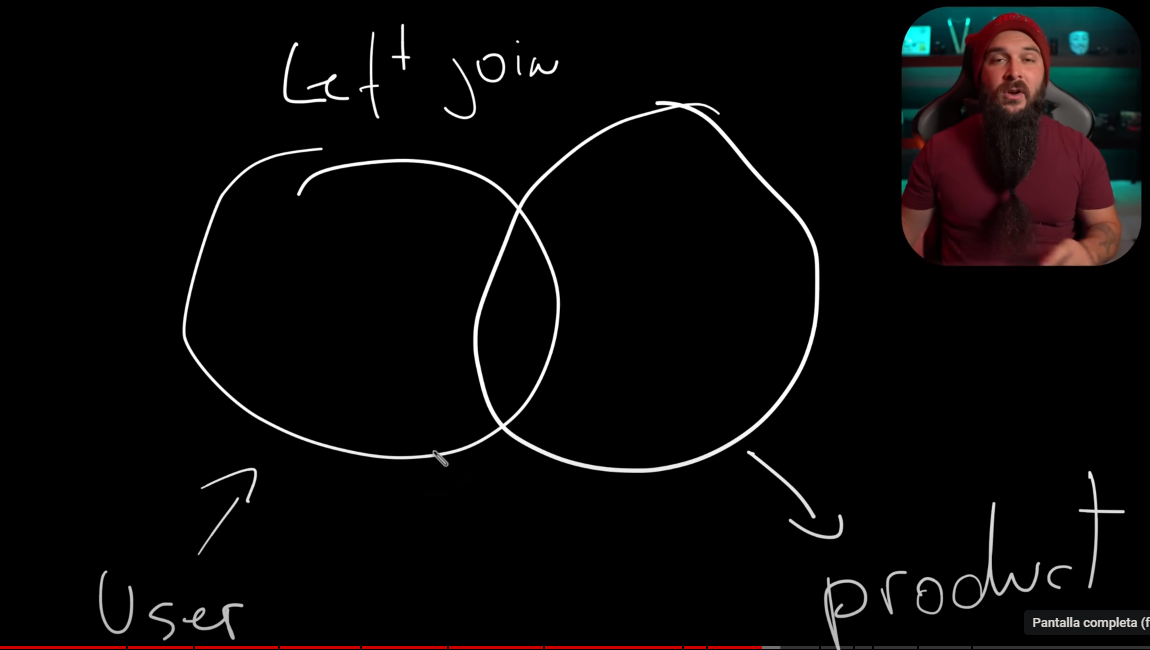 Left join
User
product
Pantalla completa (f